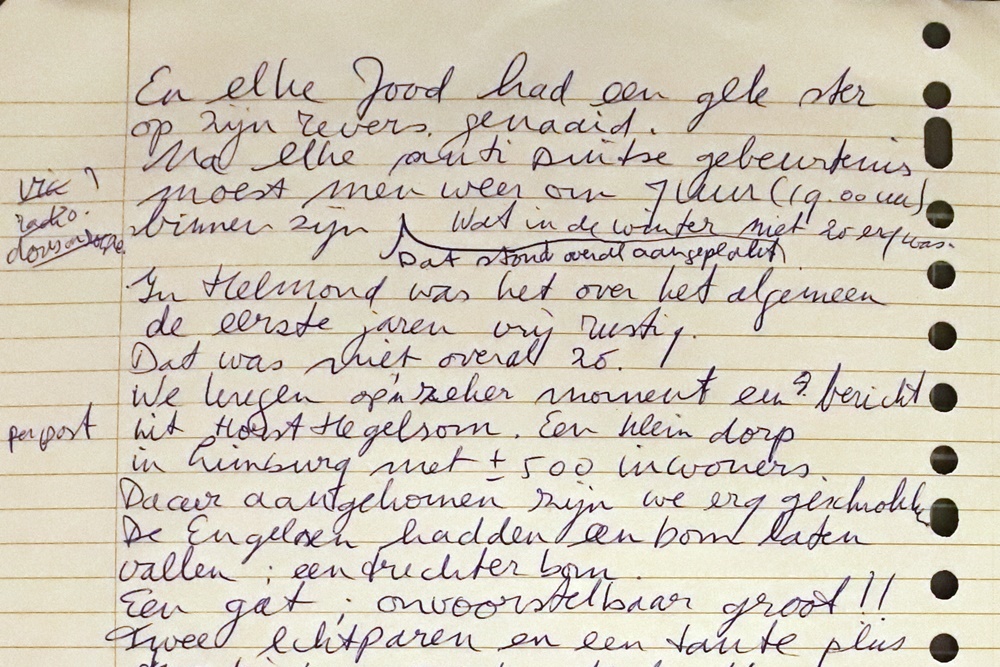 En elke Jood had een gele ster
op zijn revers. genaaid.
Na elke anti Duitse gebeurtenis
moest men weer om 7 uur (19.00 uur)
via?
radio.
binnen zijn
Wat in de winter niet zo erg was.
Dat stond overal aangeplakt
In Helmond was het over het algemeen
de eerste jaren vrij rustig.
Dat was niet overal zo.
We kregen op 'n zeker moment een ? bericht
per post
uit Horst Hegelsom. Een klein dorp
in Limburg met ± 500 inwoners
Daar aangekomen zijn we erg geschrokken
De Engelsen hadden een bom laten
vallen : een trechter bom.
Een gat ; onvoorstelbaar groot !!
Twee echtparen en een tante plus